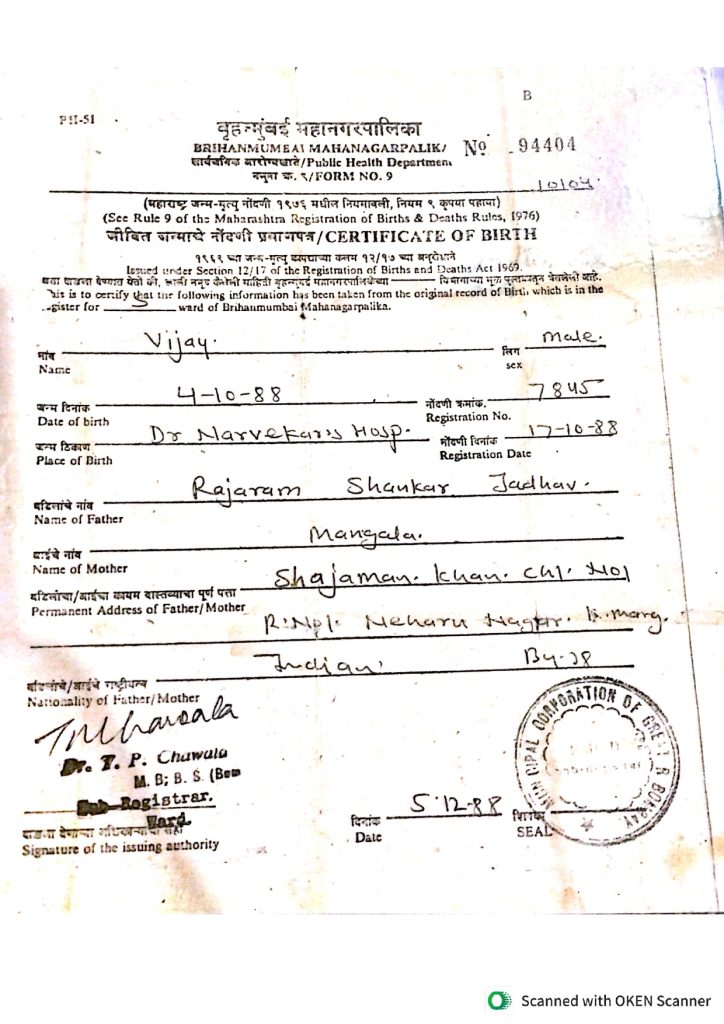 B
PH-51
बृहन्मुंबई महानगरपालिका
BRIHANMUMBAI MAHANAGARPALIKA/ No 94404
सार्वजनिक आरोग्यखाते/Public Health Department
नमुना क्र. ९/FORM NO. 9
(महाराष्ट्र जन्म-मृत्यू नोंदणी १९७६ मधील नियमावली, नियम ९ कृपया पहावा)
(See Rule 9 of the Maharashtra Registration of Births & Deaths Rules, 1976)
जीवित जन्माचे नोंदणी प्रमाणपत्र/CERTIFICATE OF BIRTH
१९६९ च्या जन्म-मृत्यू कायद्याच्या कलम १२/१७ च्या अनुरोधाने
Issued under Section 12/17 of the Registration of Births and Deaths Act 1969.
This is to certify that the following information has been taken from the original record of Birth which is in the
register for ward of Brihanmumbai Mahanagarpalika.
नांव Vijay. लिंग male.
Name sex
जन्म दिनांक 4-10-88 नोंदणी क्रमांक. 7845
Date of birth Registration No.
जन्म ठिकाण Dr Narvekar's Hosp. नोंदणी दिनांक 17-10-88
Place of Birth Registration Date
वडिलांचे नांव Rajaram Shankar Jadhav.
Name of Father
आईचे नांव Mangala.
Name of Mother
वडिलांचा/आईचा कायम वास्तव्याचा पूर्ण पत्ता Shajaman. Khan. Chl. No1
Permanent Address of Father/Mother
R. No1. Neharu Nagar. K. marg.
वडिलांचे/आईचे राष्ट्रीयत्व Indian. By-78
Nationality of Father/Mother
Dr. T. P. Chawala
M. B; B. S. (Bom
Sub-Registrar.
Ward.
दिनांक 5.12-88
Date SEAL
Signature of the issuing authority
MUNICIPAL CORPORATION OF GREATER BOMBAY
Scanned with OKEN Scanner